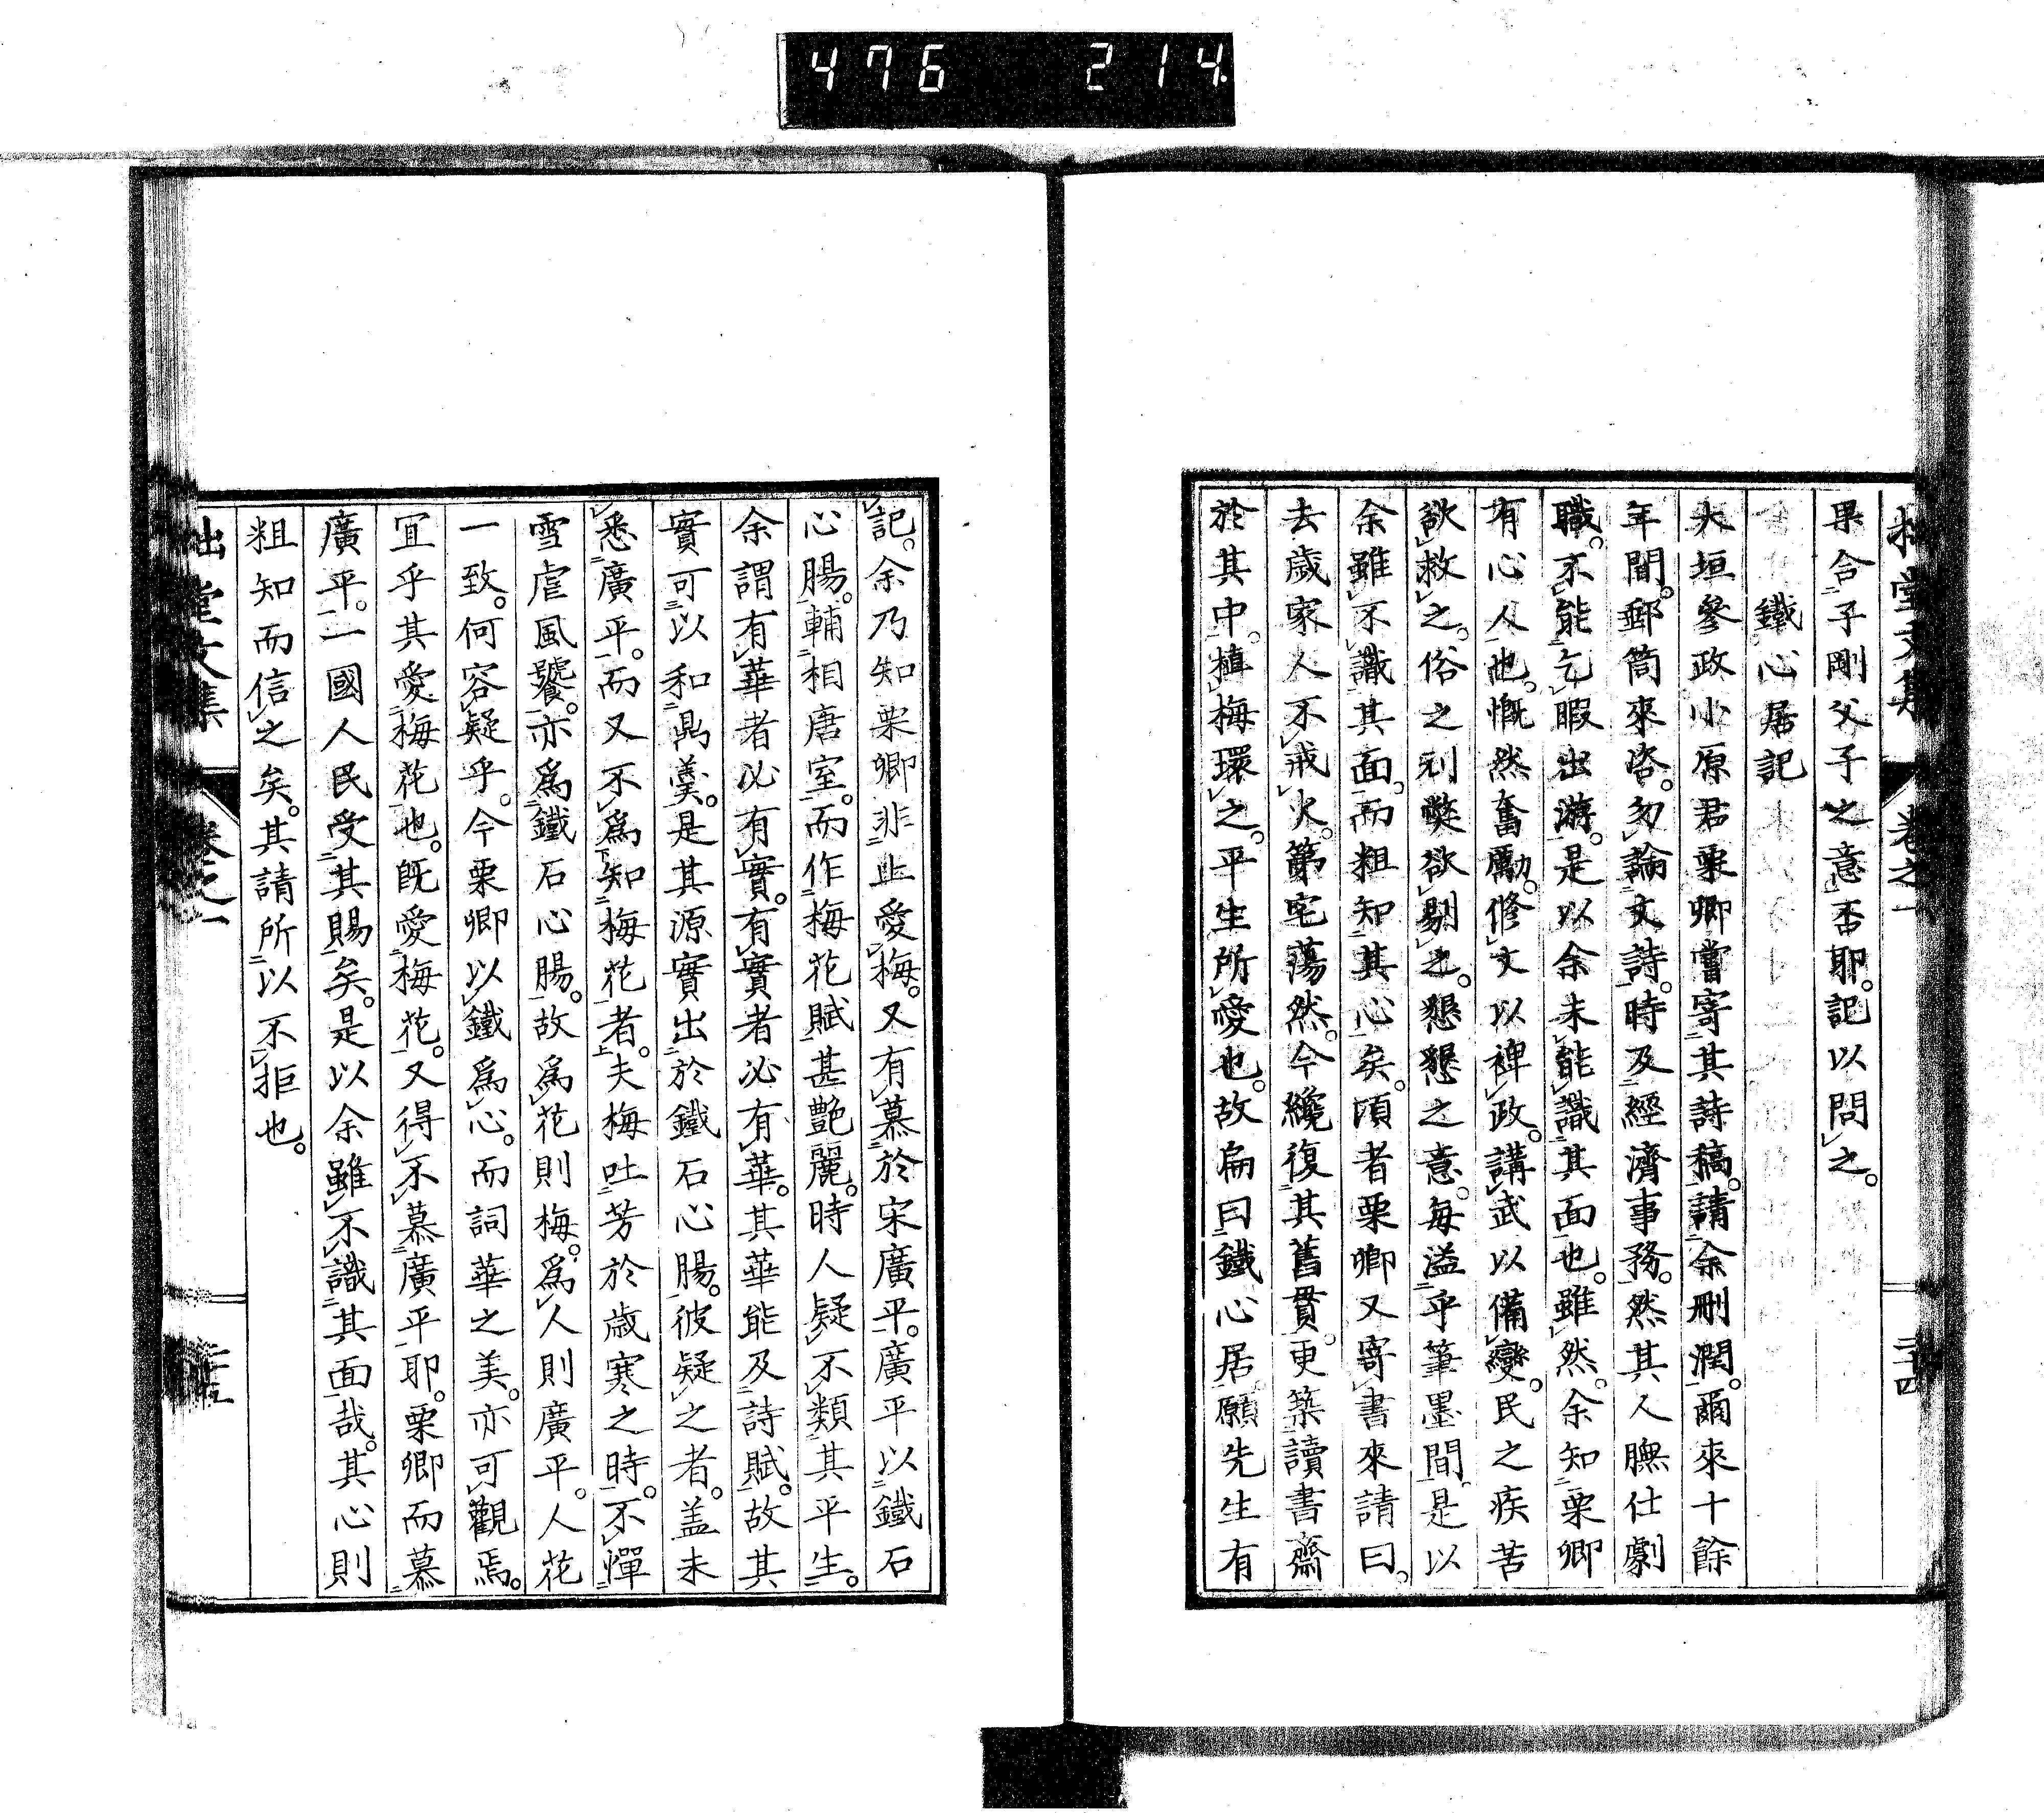 476 214
拙堂文集 卷之一 二十四
果合子剛父子之意否耶。記以問之。
鐵心居記
大垣參政小原君栗卿嘗寄其詩稿。請余刪潤。爾來十餘
年間。郵筒來咨。勿論文詩。時及經濟事務。然其人膴仕劇
職。不能乞暇出游。是以余未能識其面也。雖然。余知栗卿
有心人也。慨然奮勵。修文以裨政。講武以備變。民之疾苦
欲救之。俗之利弊欲剔之。懇懇之意。每溢乎筆墨間。是以
余雖不識其面。而粗知其心矣。頃者栗卿又寄書來請曰。
去歲家人不戒火。第宅蕩然。今纔復其舊貫。更築讀書齋
於其中。植梅環之。平生所愛也。故扁曰鐵心居。願先生有
記。余乃知栗卿非止愛梅。又有慕於宋廣平。廣平以鐵石
心腸。輔相唐室。而作梅花賦甚艷麗。時人疑不類其平生。
余謂有華者必有實。有實者必有華。其華能及詩賦。故其
實可以和鼎羹。是其源實出於鐵石心腸。彼疑之者。盖未
悉廣平。而又不爲知梅花者。夫梅吐芳於歲寒之時。不憚
雪虐風饕。亦爲鐵石心腸。故爲花則梅。爲人則廣平。人花
一致。何容疑乎。今栗卿以鐵爲心。而詞華之美。亦可觀焉。
宜乎其愛梅花也。旣愛梅花。又得不慕廣平耶。栗卿而慕
廣平。一國人民受其賜矣。是以余雖不識其面哉。其心則
粗知而信之矣。其請所以不拒也。
拙堂文集 卷之一 二十五